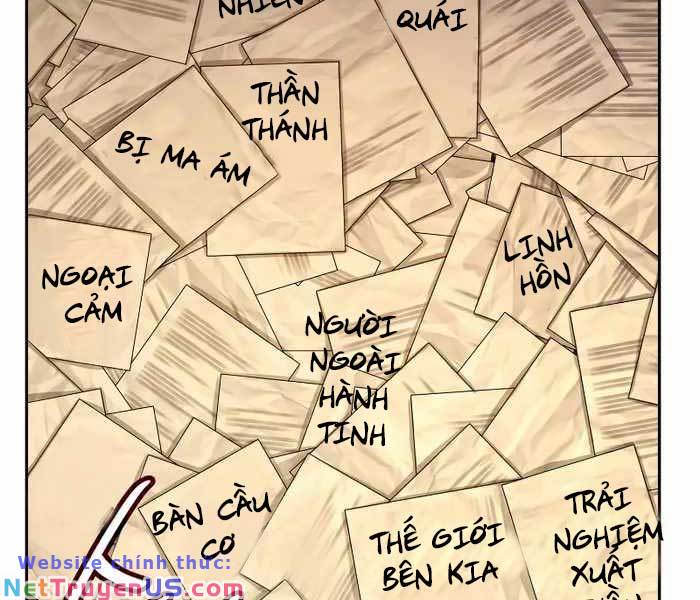 NHIÊN
QUÁI
THẦN
THÁNH
BỊ MA ÁM
LINH
HỒN
NGOẠI
CẢM
NGƯỜI
NGOÀI
HÀNH
TINH
BÀN CẦU
CƠ
THẾ GIỚI
BÊN KIA
TRẢI
NGHIỆM
XUẤT
Website chính thức:
NetTruyenUS.com